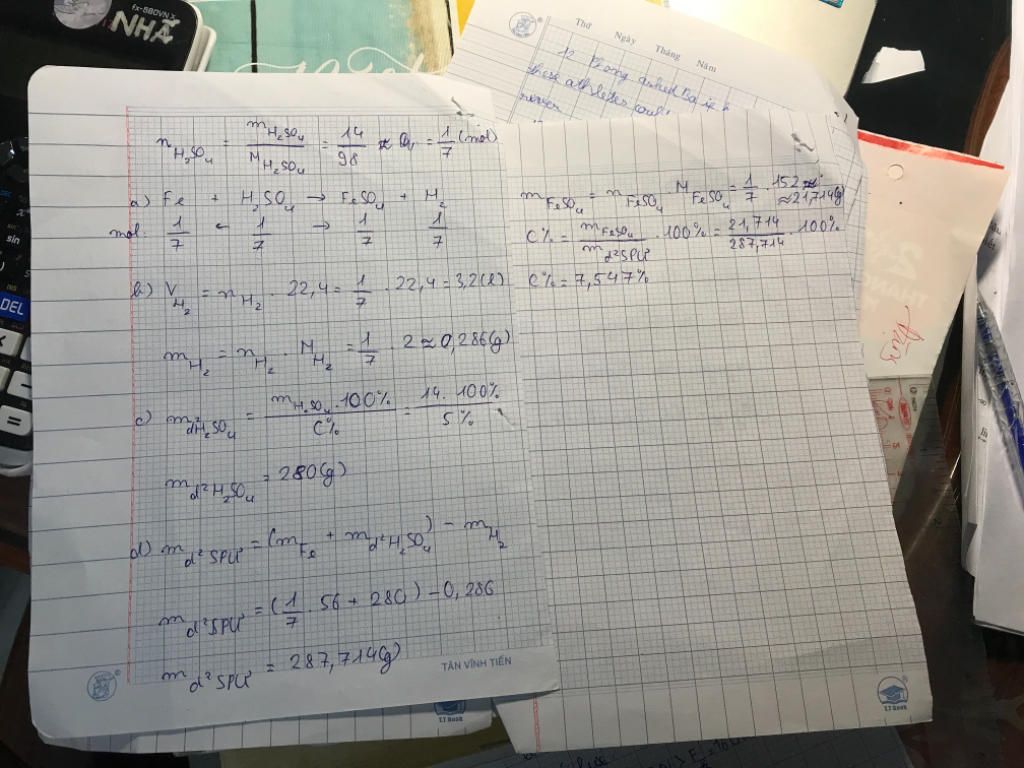 fx-580VN X
NHÃ
sin
DEL
=
Thứ Ngày Tháng Năm
12
these athletes could
n H₂SO₄ = m H₂SO₄ / M H₂SO₄ = 14/98 = 1/7 (mol)
a) Fe + H₂SO₄ → FeSO₄ + H₂
mol: 1/7 ← 1/7 → 1/7 1/7
b) V H₂ = n H₂ . 22,4 = 1/7 . 22,4 = 3,2(l)
m H₂ = n H₂ . M H₂ = 1/7 . 2 ≈ 0,286(g)
c) m d²H₂SO₄ = m H₂SO₄ . 100% / C% = 14. 100% / 5%
m d²H₂SO₄ = 280(g)
d) m d²SPƯ = (m Fe + m d²H₂SO₄) - m H₂
m d²SPƯ = (1/7 . 56 + 280) - 0,286
m d²SPƯ = 287,714(g)
TÂN VĨNH TIẾN
m FeSO₄ = n FeSO₄ . M FeSO₄ = 1/7 . 152
≈ 21,714(g)
C% = m FeSO₄ / m d²SPƯ . 100% = 21,714 / 287,714 . 100%
C% = 7,547%